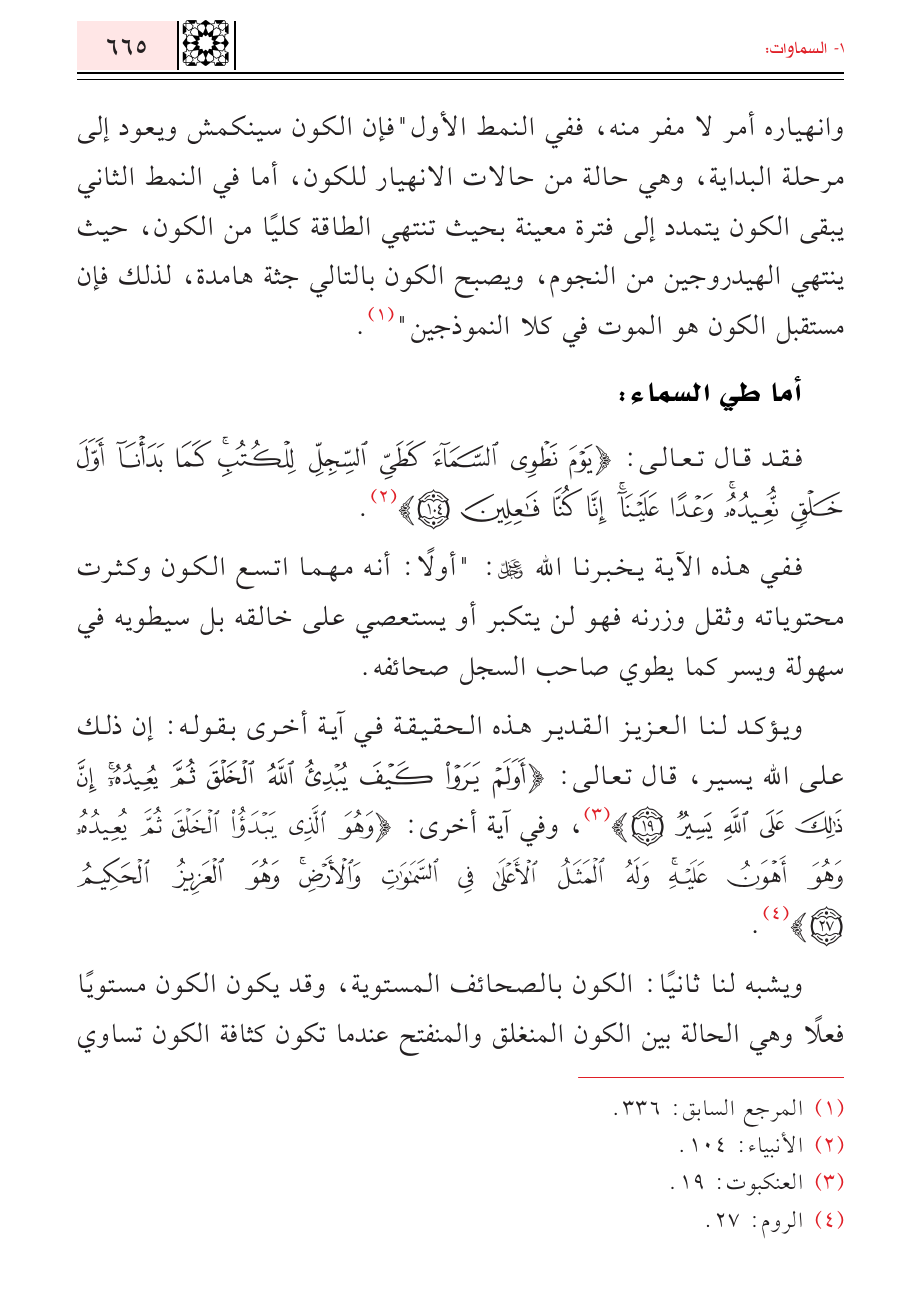 ١- السماوات:
٦٦٥
وانهياره أمر لا مفر منه، ففي النمط الأول "فإن الكون سينكمش ويعود إلى
مرحلة البداية، وهي حالة من حالات الانهيار للكون، أما في النمط الثاني
يبقى الكون يتمدد إلى فترة معينة بحيث تنتهي الطاقة كليًا من الكون، حيث
ينتهي الهيدروجين من النجوم، ويصبح الكون بالتالي جثة هامدة، لذلك فإن
مستقبل الكون هو الموت في كلا النموذجين"(١).
أما طي السماء:
فقد قال تعالى: ﴿يَوْمَ نَطْوِى ٱلسَّمَآءَ كَطَىِّ ٱلسِّجِلِّ لِلْكُتُبِ ۚ كَمَا بَدَأْنَآ أَوَّلَ
خَلْقٍ نُّعِيدُهُۥ ۚ وَعْدًا عَلَيْنَآ ۚ إِنَّا كُنَّا فَٰعِلِينَ ١٠٤﴾(٢).
ففي هذه الآية يخبرنا الله ﷻ: "أولًا: أنه مهما اتسع الكون وكثرت
محتوياته وثقل وزرنه فهو لن يتكبر أو يستعصي على خالقه بل سيطويه في
سهولة ويسر كما يطوي صاحب السجل صحائفه.
ويؤكد لنا العزيز القدير هذه الحقيقة في آية أخرى بقوله: إن ذلك
على الله يسير، قال تعالى: ﴿أَوَلَمْ يَرَوْا۟ كَيْفَ يُبْدِئُ ٱللَّهُ ٱلْخَلْقَ ثُمَّ يُعِيدُهُۥٓ ۚ إِنَّ
ذَٰلِكَ عَلَى ٱللَّهِ يَسِيرٌ ١٩﴾(٣)، وفي آية أخرى: ﴿وَهُوَ ٱلَّذِى يَبْدَؤُا۟ ٱلْخَلْقَ ثُمَّ يُعِيدُهُۥ
وَهُوَ أَهْوَنُ عَلَيْهِ ۚ وَلَهُ ٱلْمَثَلُ ٱلْأَعْلَىٰ فِى ٱلسَّمَٰوَٰتِ وَٱلْأَرْضِ ۚ وَهُوَ ٱلْعَزِيزُ ٱلْحَكِيمُ
٢٧﴾(٤).
ويشبه لنا ثانيًا: الكون بالصحائف المستوية، وقد يكون الكون مستويًا
فعلًا وهي الحالة بين الكون المنغلق والمنفتح عندما تكون كثافة الكون تساوي
(١) المرجع السابق: ٣٣٦.
(٢) الأنبياء: ١٠٤.
(٣) العنكبوت: ١٩.
(٤) الروم: ٢٧.